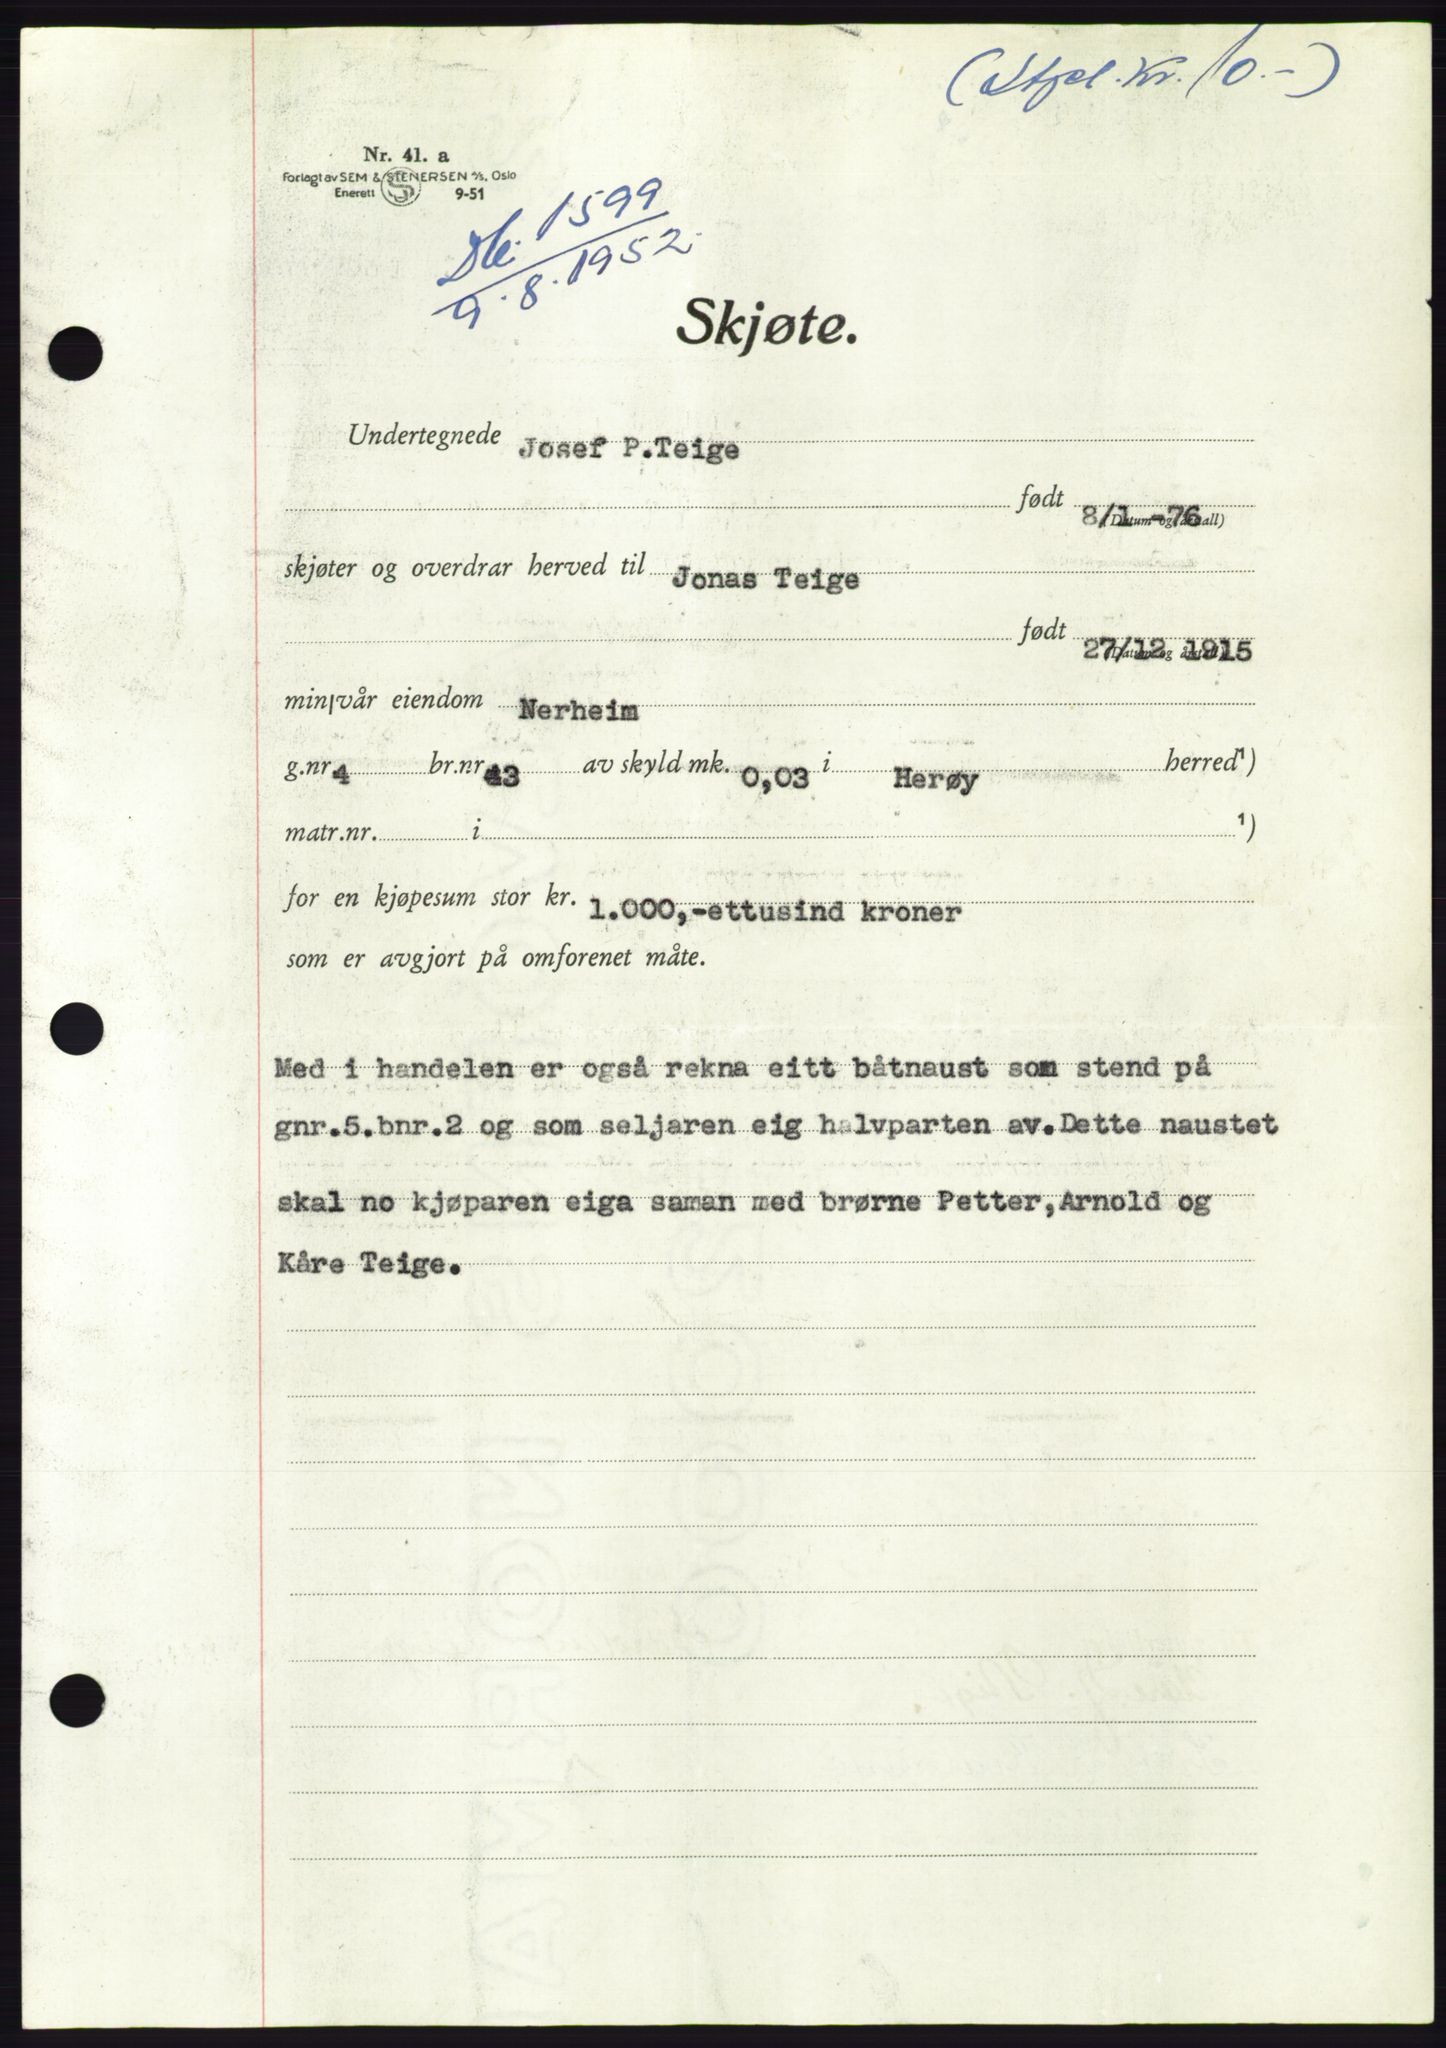 (Stpl. Kr. 10.-)
Nr. 41. a
Forlagt av SEM & STENERSEN A/S, Oslo
Enerett 9-51
Db. 1599
9.8.1952.
Skjøte.
Undertegnede Josef P.Teige
født 8/1 -76
(Datum og årstall)
skjøter og overdrar herved til Jonas Teige
født 27/12 1915
(Datum og årstall)
min/vår eiendom Nerheim
g.nr 4 br.nr 43 av skyld mk. 0,03 i Herøy herred ¹)
matr.nr. i ¹)
for en kjøpesum stor kr. 1.000,-ettusind kroner
som er avgjort på omforenet måte.
Med i handelen er også rekna eitt båtnaust som stend på
gnr.5.bnr.2 og som seljaren eig halvparten av.Dette naustet
skal no kjøparen eiga saman med brørne Petter,Arnold og
Kåre Teige.